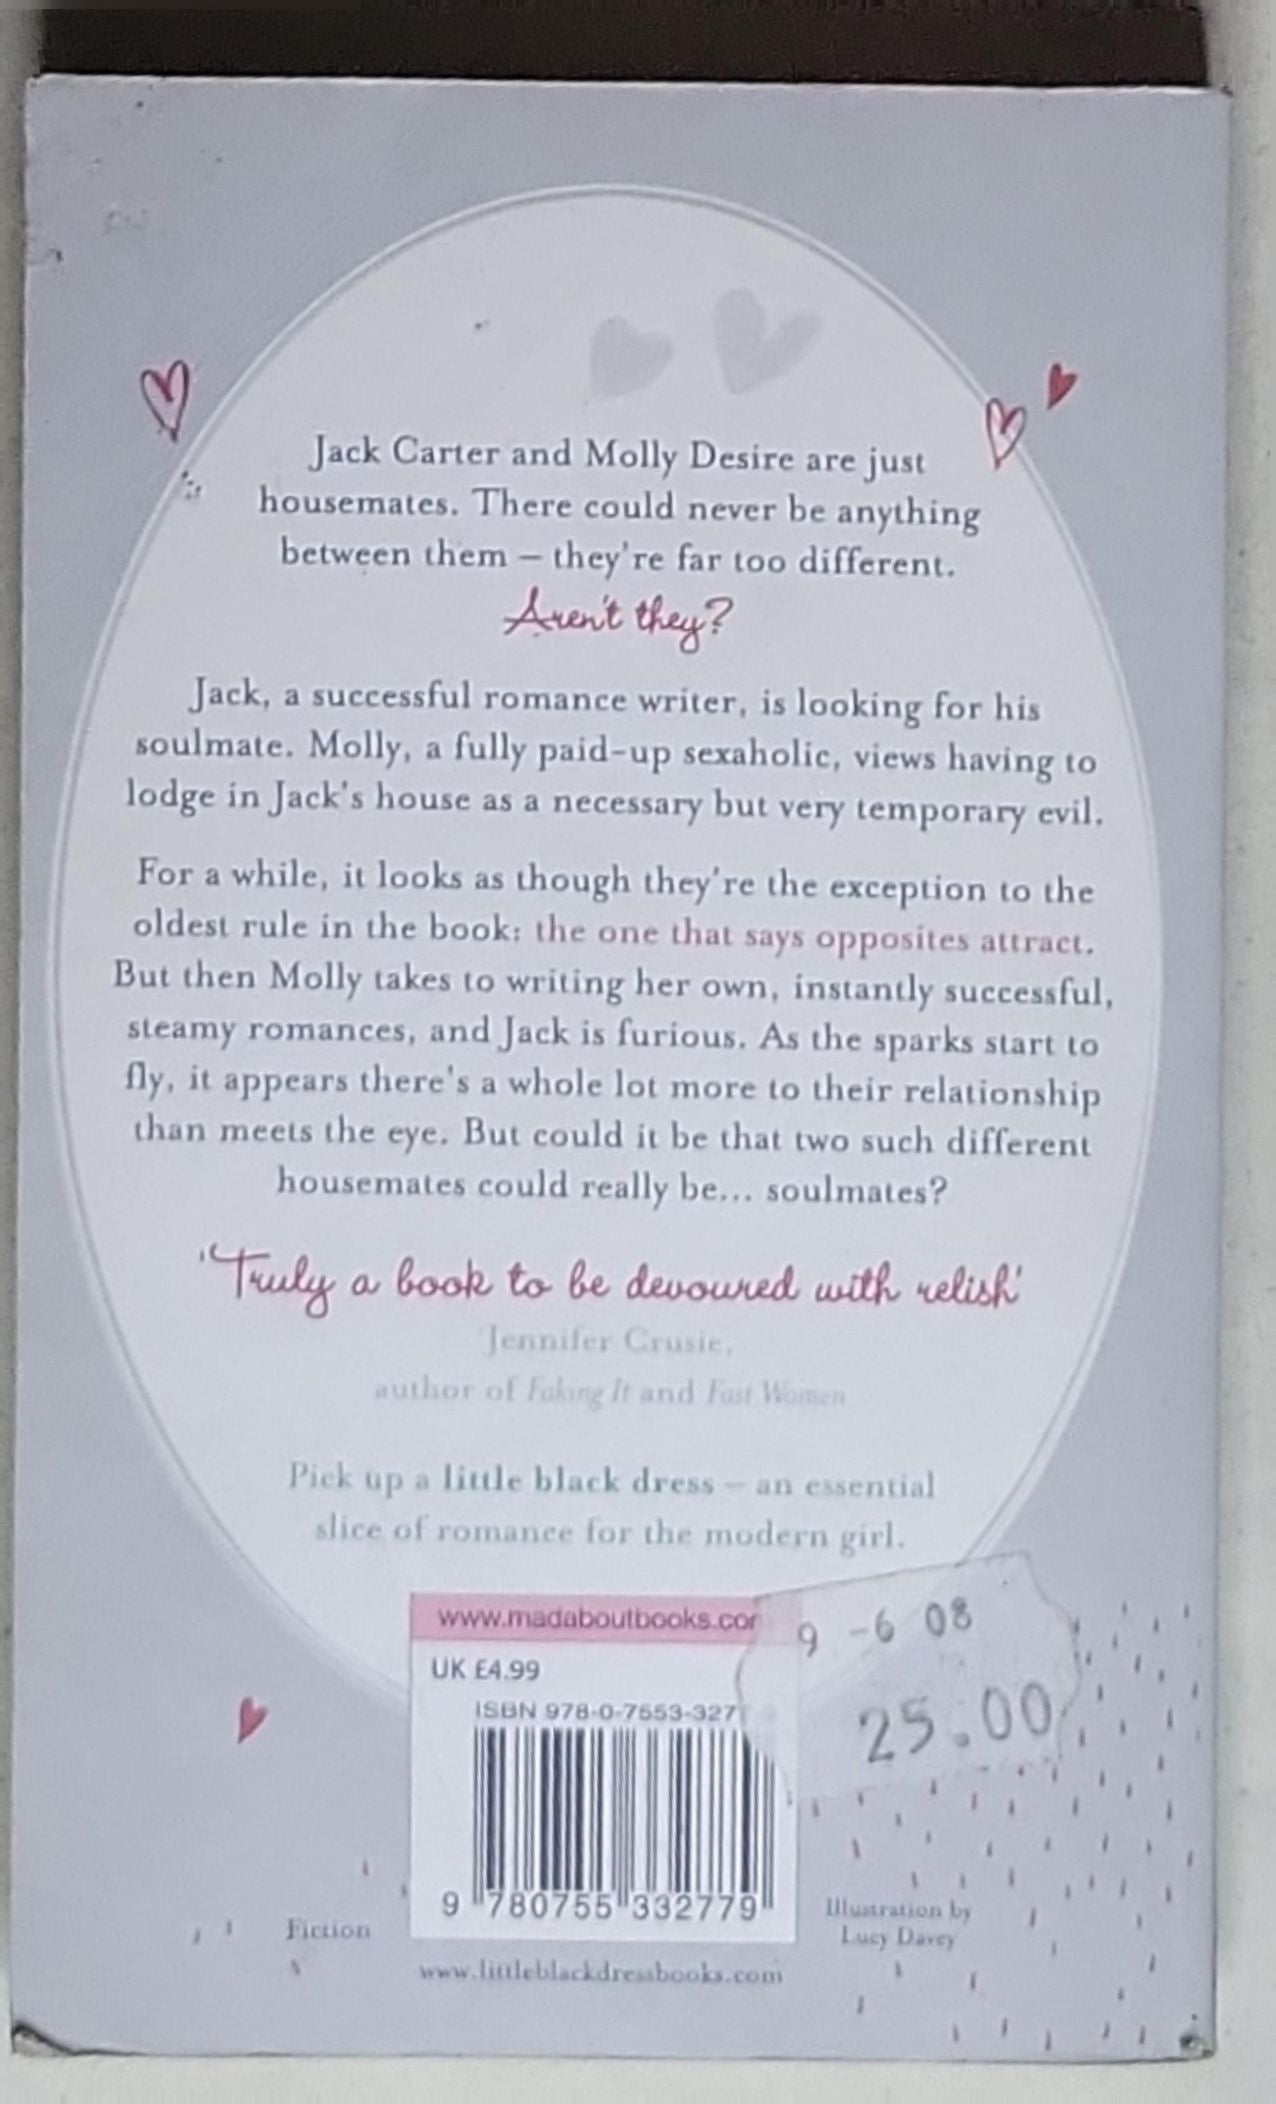 Jack Carter and Molly Desire are just
housemates. There could never be anything
between them – they're far too different.
Aren't they?
Jack, a successful romance writer, is looking for his
soulmate. Molly, a fully paid-up sexaholic, views having to
lodge in Jack's house as a necessary but very temporary evil.
For a while, it looks as though they're the exception to the
oldest rule in the book: the one that says opposites attract.
But then Molly takes to writing her own, instantly successful,
steamy romances, and Jack is furious. As the sparks start to
fly, it appears there's a whole lot more to their relationship
than meets the eye. But could it be that two such different
housemates could really be... soulmates?
'Truly a book to be devoured with relish'
Jennifer Crusie,
author of Faking It and Fast Women
Pick up a little black dress – an essential
slice of romance for the modern girl.
www.madaboutbooks.cor
9 -6 08
UK £4.99
25.00
ISBN 978-0-7553-327
9 780755 332779
Fiction
Illustration by
Lucy Davey
www.littleblackdressbooks.com